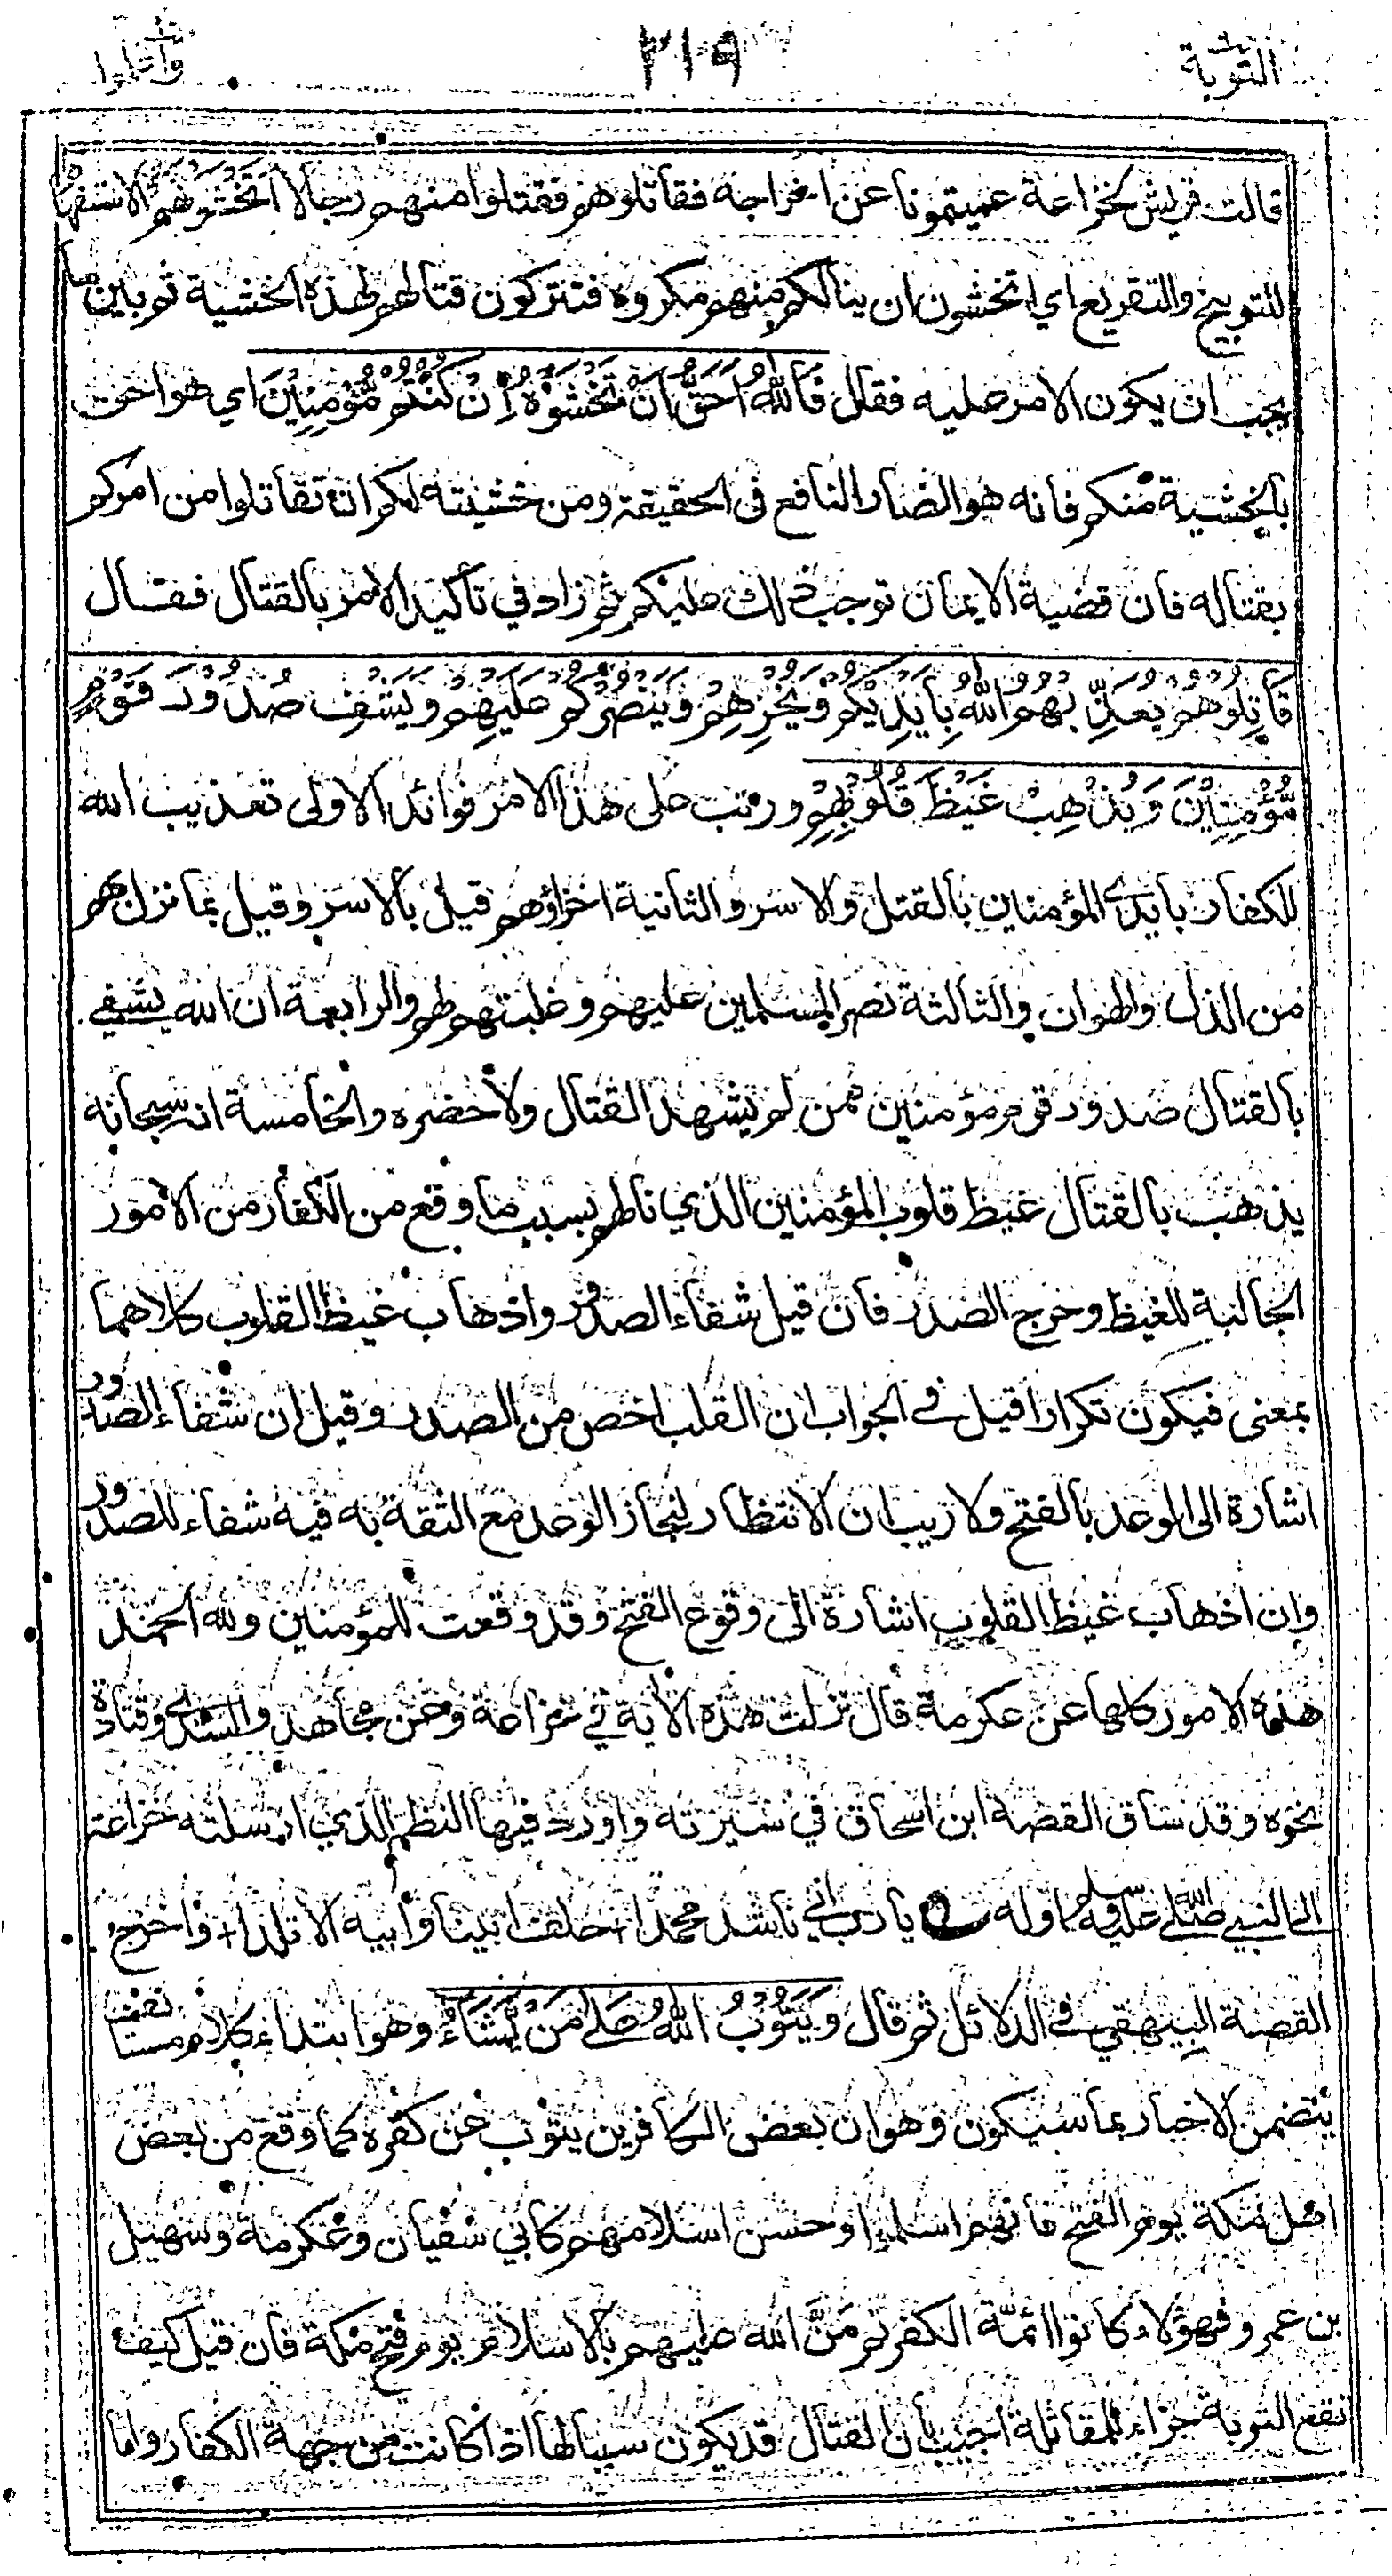 التوبة ٢١٩ واعلموا
قالت قريش لخزاعة عميتمونا عن اخراجه فقاتلوهم فقتلوا منهم رجالا أَتَخْشَوْنَهُمْ الاستفهام
للتوبيخ والتقريع اي اتخشون ان ينالكم منهم مكروه فتتركون قتالهم لهذه الخشية ثم بين ما
يجب ان يكون الامر عليه فقال فَاللّٰهُ اَحَقُّ اَنْ تَخْشَوْهُ اِنْ كُنْتُمْ مُّؤْمِنِيْنَ اي هو احق
بالخشية منكم فانه هو الضار النافع في الحقيقة ومن خشيته لكم ان تقاتلوا من امركم
بقتاله فان قضية الايمان توجب ذلك عليكم ثم زاد في تأكيد الامر بالقتال فقال
قَاتِلُوْهُمْ يُعَذِّبْهُمُ اللّٰهُ بِاَيْدِيْكُمْ وَيُخْزِهِمْ وَيَنْصُرْكُمْ عَلَيْهِمْ وَيَشْفِ صُدُوْرَ قَوْمٍ
مُّؤْمِنِيْنَ وَيُذْهِبْ غَيْظَ قُلُوْبِهِمْ ورتب على هذا الامر فوائد الاولى تعذيب الله
للكفار بايدي المؤمنين بالقتل والاسر والثانية اخزاؤهم قيل بالاسر وقيل بما نزل بهم
من الذل والهوان والثالثة نصر المسلمين عليهم وغلبتهم لهم والرابعة ان الله يشفي
بالقتال صدور قوم مؤمنين ممن لم يشهد القتال ولا حضره والخامسة انه سبحانه
يذهب بالقتال غيظ قلوب المؤمنين الذي نالهم بسبب ما وقع من الكفار من الامور
الجالبة للغيظ وحرج الصدر فان قيل شفاء الصدور واذهاب غيظ القلوب كلاهما
بمعنى فيكون تكرارا قيل في الجواب ان القلب اخص من الصدر وقيل ان شفاء الصدور
اشارة الى الوعد بالفتح ولا ريب ان الانتظار لنجاز الوعد مع الثقة به فيه شفاء للصدور
وان اذهاب غيظ القلوب اشارة الى وقوع الفتح وقد وقعت للمؤمنين ولله الحمد
هذه الامور كلها عن عكرمة قال نزلت هذه الآية في خزاعة وعن مجاهد والسدي وقتادة
نحوه وقد ساق القصة ابن اسحاق في سيرته واورد فيها النظم الذي ارسلته خزاعة
الى النبي صلى الله عليه وسلم اوله يا رب اني ناشد محمدا حلف ابينا وابيه الاتلدا واخرج
القصة البيهقي في الدلائل ثم قال وَيَتُوْبُ اللّٰهُ عَلٰى مَنْ يَّشَآءُ وهو ابتداء كلام مستانف
يتضمن الاخبار بما سيكون وهو ان بعض الكافرين يتوب عن كفره كما وقع من بعض
اهل مكة يوم الفتح فانهم اسلموا وحسن اسلامهم كابي سفيان وعكرمة وسهيل
بن عمرو فهؤلاء كانوا ائمة الكفر ثم منَّ الله عليهم بالاسلام يوم فتح مكة فان قيل كيف
تقع التوبة جزاء للمقاتلة اجيب بأن القتال قد يكون سببا لها اذا كانت من جهة الكفار واما